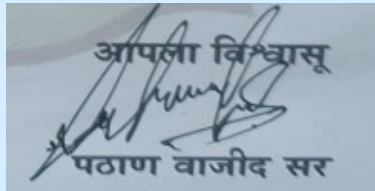 आपला विश्वासू
पठाण वाजीद सर